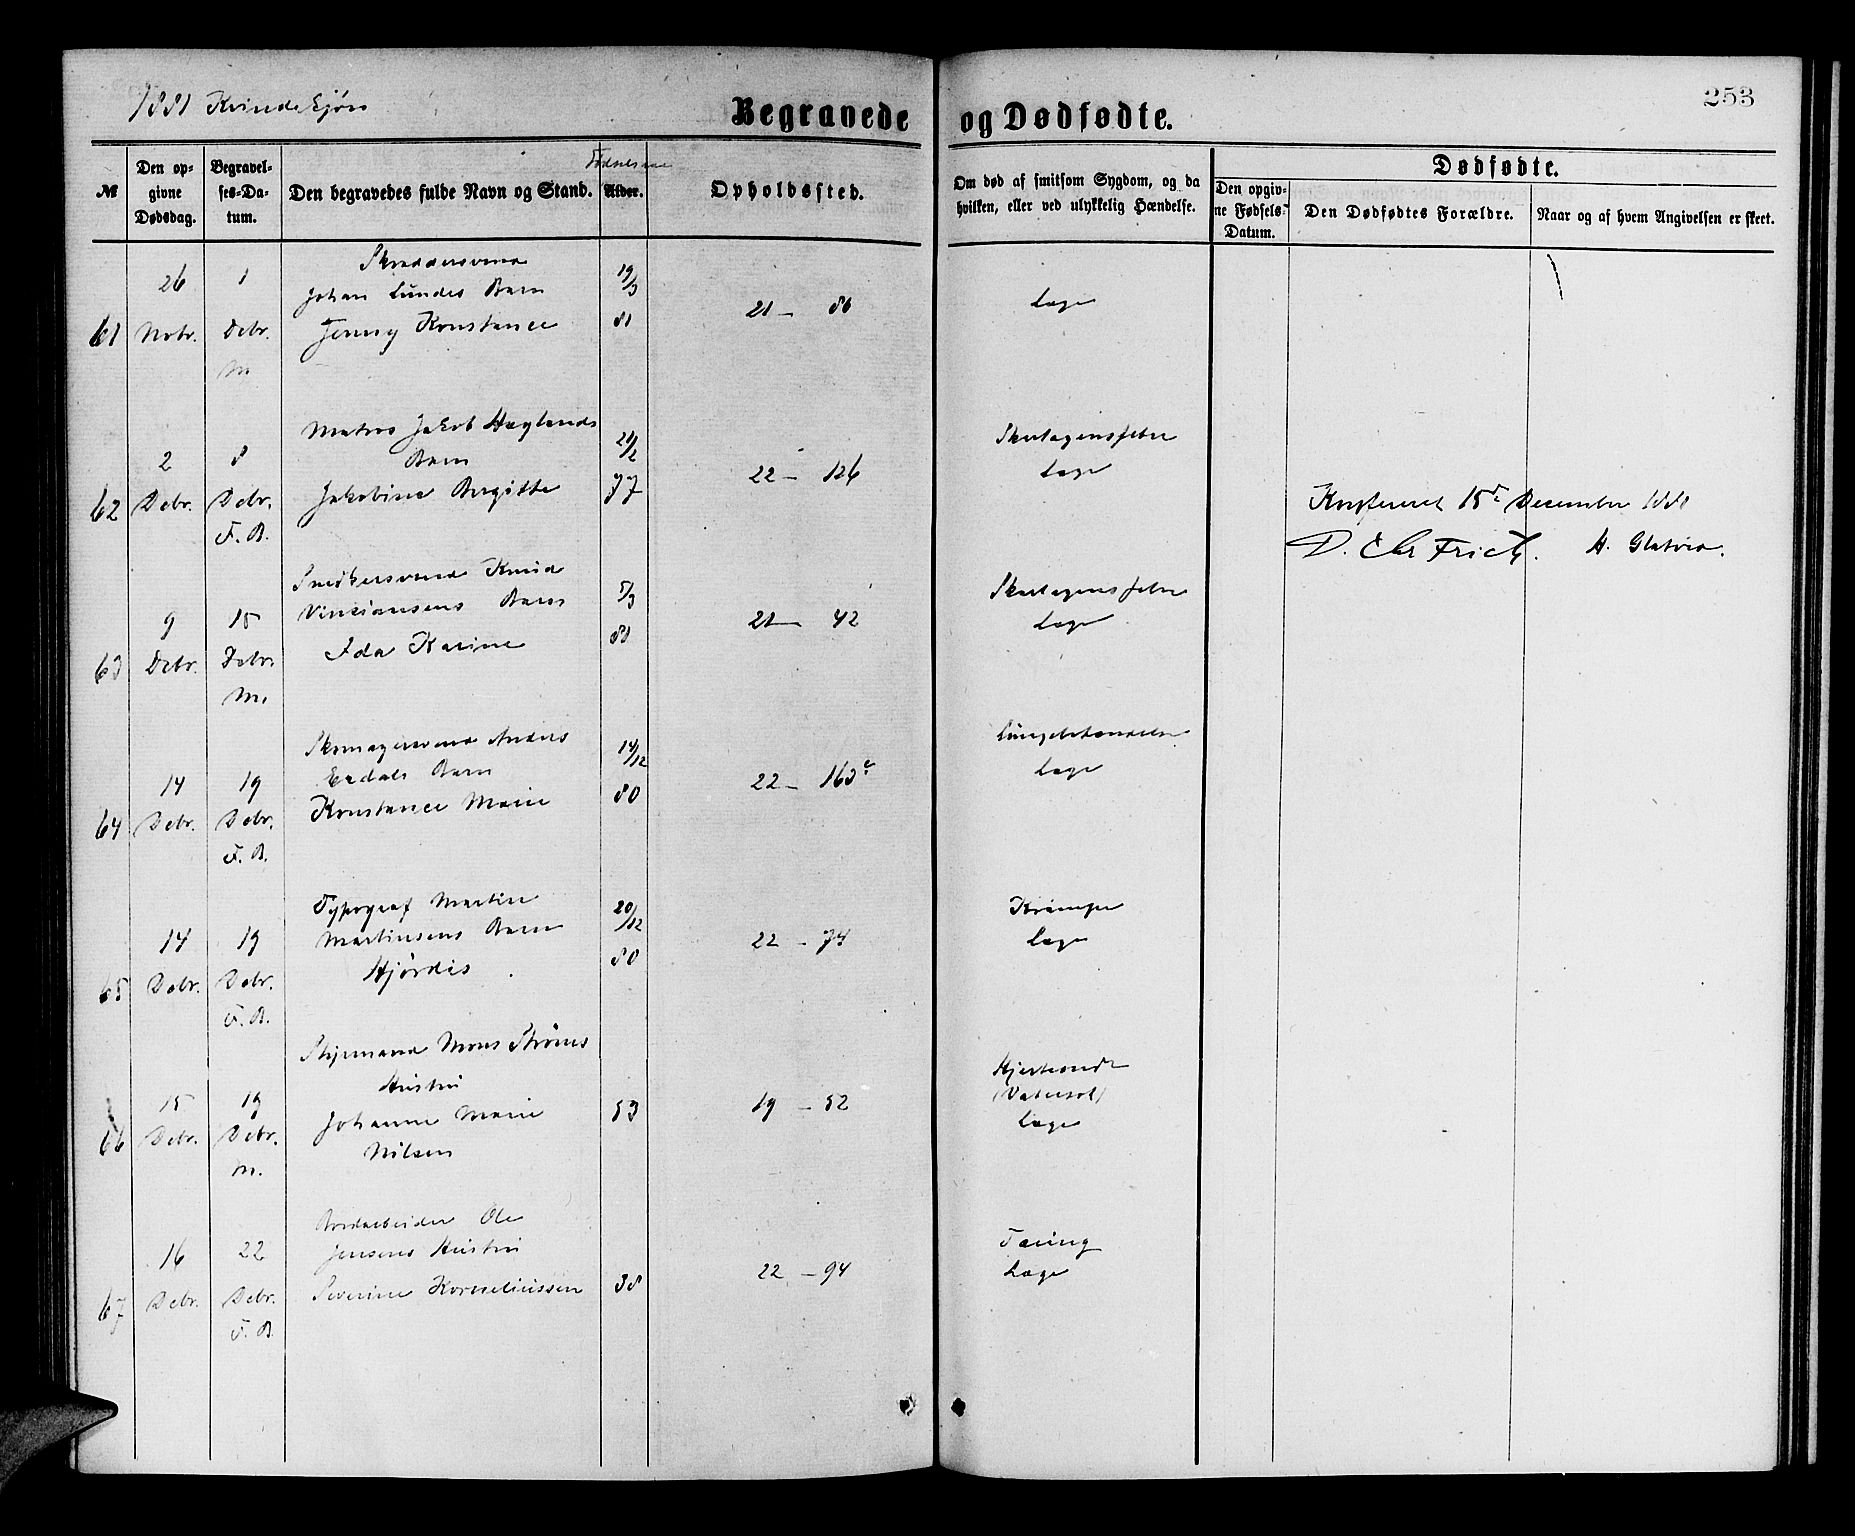 1881 Kvindekjøn
Begravede og Dødfødte.
253
№
Den op-
givne
Dødsdag.
Begravel-
ses-Da-
tum.
Den begravedes fulde Navn og Stand.
Fødselsaar
Alder.
Opholdssted.
Om død af smitsom Sygdom, og da
hvilken, eller ved ulykkelig Hændelse.
Dødfødte.
Den opgiv-
ne Fødsels-
Datum.
Den Dødfødtes Forældre.
Naar og af hvem Angivelsen er skeet.
61
26
Novbr.
1
Decbr.
M
Skræddersvend
Johan Lundes Barn
Jenny Konstance
19/3
81
21 – 86
Læge
62
2
Decbr.
8
Decbr.
F. B.
Matros Jakob Høglands
Barn
Jakobine Bergitte
21/2
77
22 – 126
Skarlagensfeber
Læge
Konfereret 15de December 1881
H. Glatvedt.
63
9
Decbr.
15
Decbr.
M.
Snedkersvend Knud
Barn
Ida Karine
5/3
81
21 – 42
Skarlagensfeber
Læge
64
14
Decbr.
19
Decbr.
F. B.
Skomagersvend Anders
Erdals Barn
Konstance Marie
14/12
80
22 – 163c
Lungebetændelse
Læge
65
14
Decbr.
19
Decbr.
F. B.
Typograf Martin
Martinsens Barn
Hjørdis
20/12
80
22 – 74
Krampe
Læge
66
15
Decbr.
19
Decbr.
M.
Styrmand Mons Strøms
Hustru
Johanne Marie
Nilsen
53
19 – 52
Hjerteonde
(Vatersot)
Læge
67
16
Decbr.
22
Decbr.
F. B.
Jordarbeider Ole
Jensens Hustru
Severine Korneliussen
38
22 – 94
Tæring
Læge